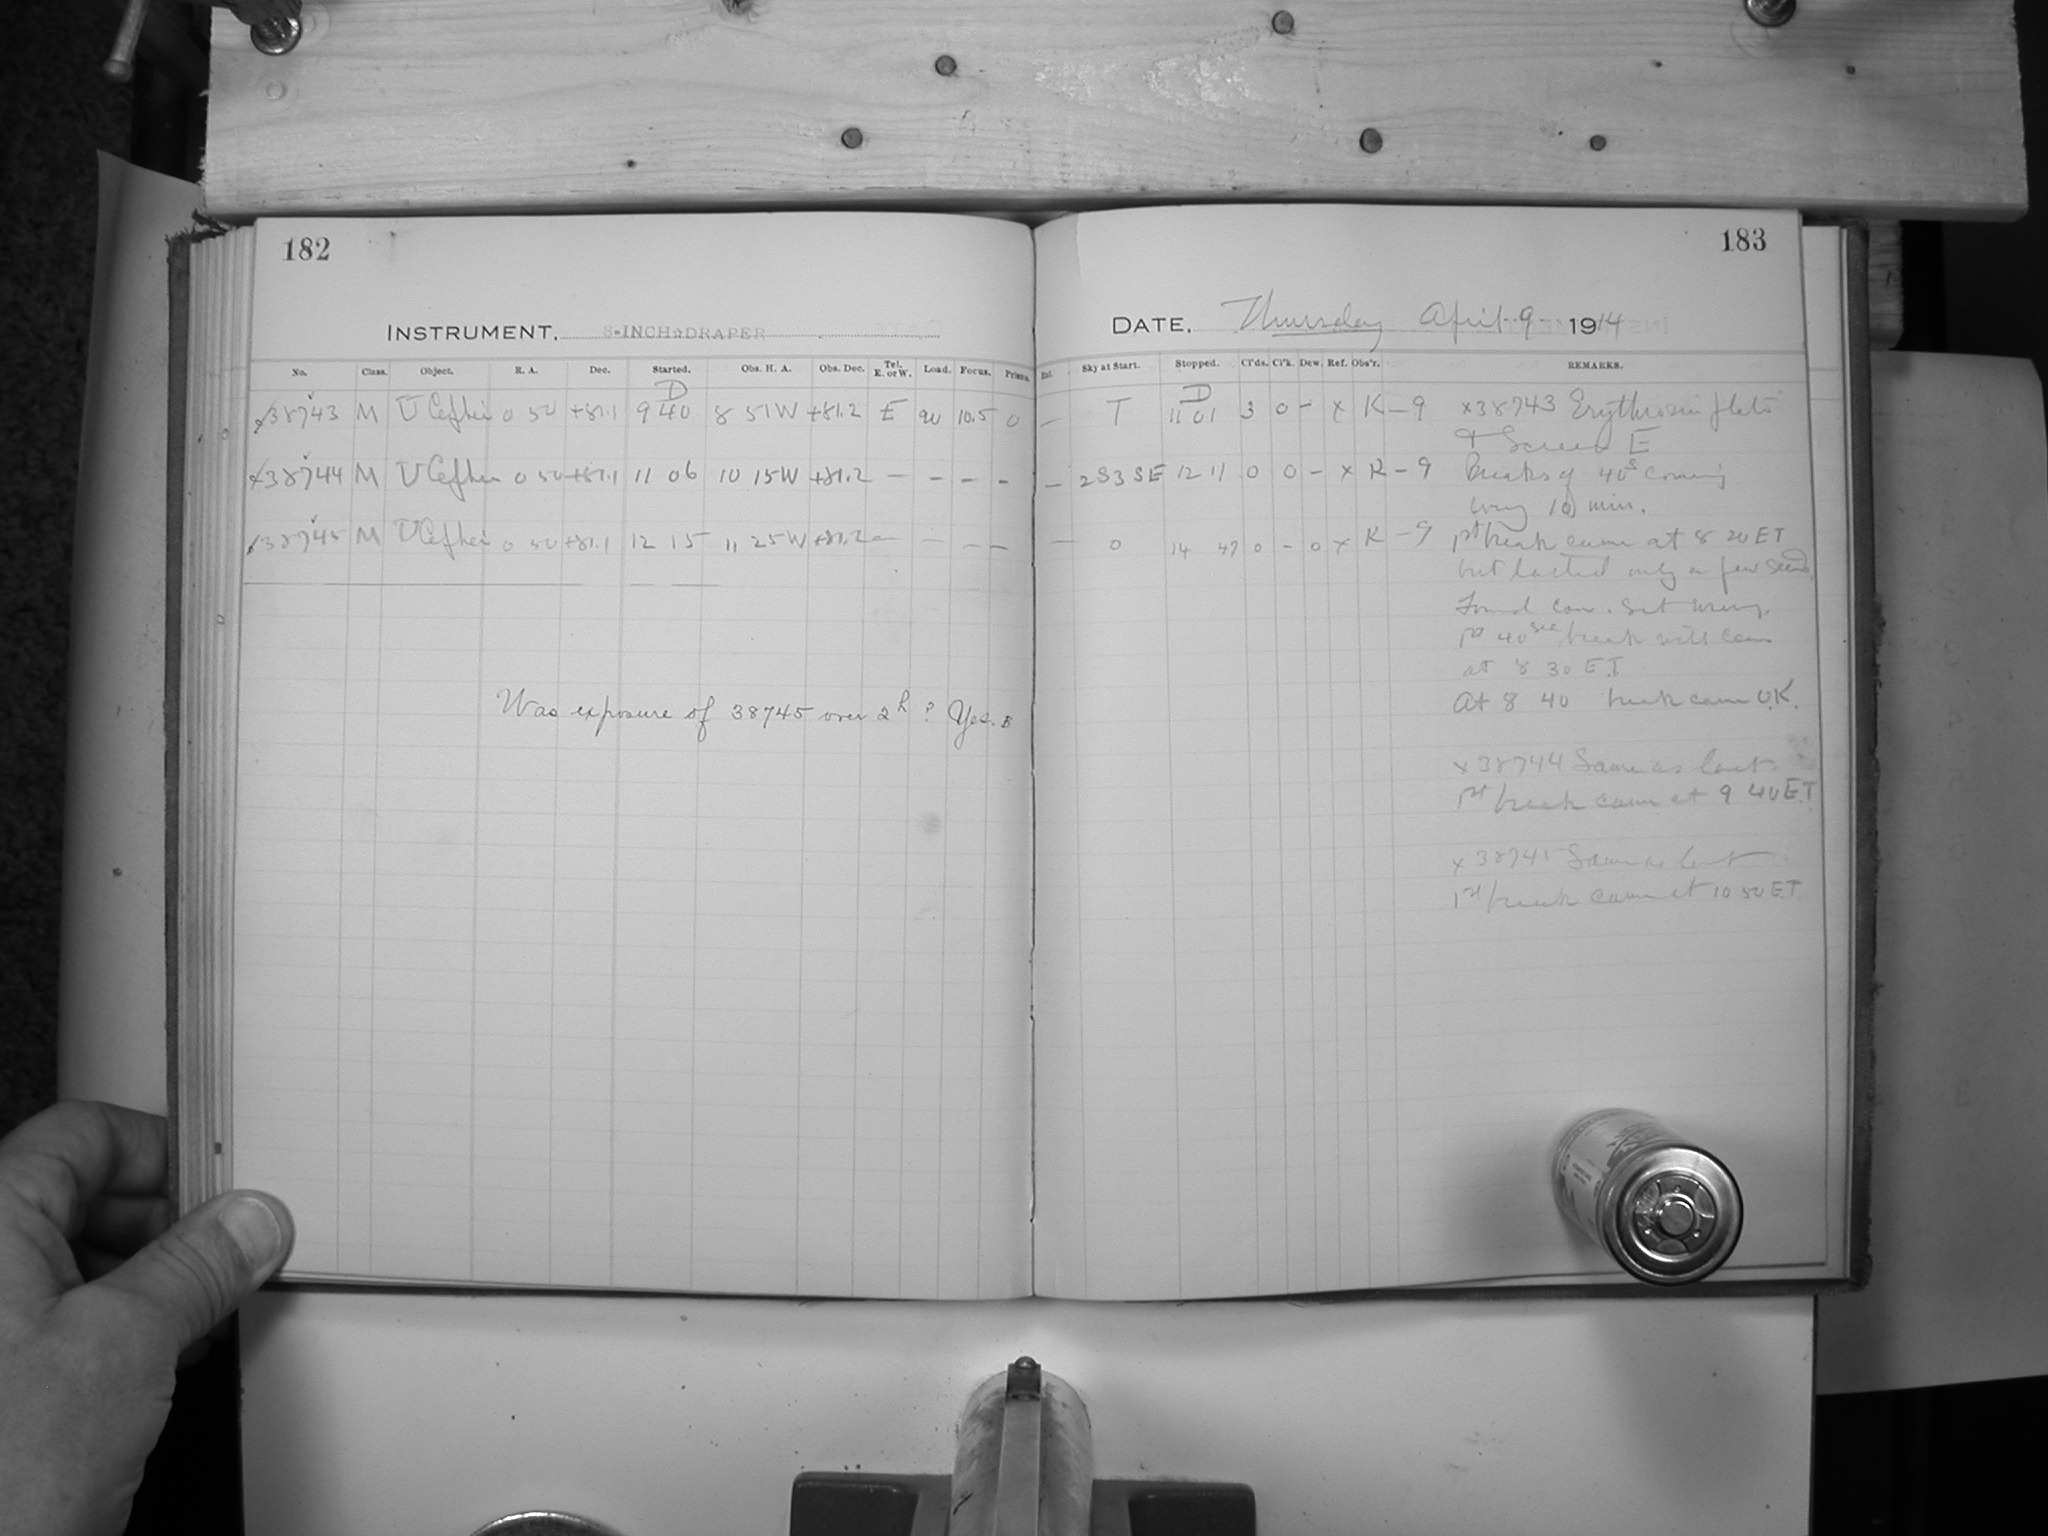 182
INSTRUMENT. 8-INCH DRAPER
No. Class. Object. R. A. Dec. Started. Obs. H. A. Obs. Dec. Tel. E. or W. Load. Focus. Prisms.
D
x38743 M U Cephei 0 50 +81.1 9 40 8 51W +81.2 E 90 10.5 0
x38744 M U Cephei 0 50 +81.1 11 06 10 15W +81.2 — – – -
x38745 M U Cephei 0 50 +81.1 12 15 11 25W +81.2 — – – –
Was exposure of 38745 over 2h? Yes. B
183
DATE. Thursday April 9 1914
Sky at Start. Stopped. Cl'ds. Cl'k. Dew. Ref. Obs'r. REMARKS.
D
— T 11 01 3 0 - x K – 9 x38743 Erythrosin plate
& Screen E
— 2S3SE 12 11 0 0 - x K – 9 Breaks of 40s coming
every 10 min.
— 0 14 47 0 - 0 x K – 9 1st break came at 8 20 ET
but lasted only a few seconds
Found con. set wrong.
1st 40sec break will come
at 8 30 E.T.
At 8 40 break came O.K.
x38744 Same as last.
1st break came at 9 40 E.T.
x38745 Same as last
1st break came at 10 50 E.T.